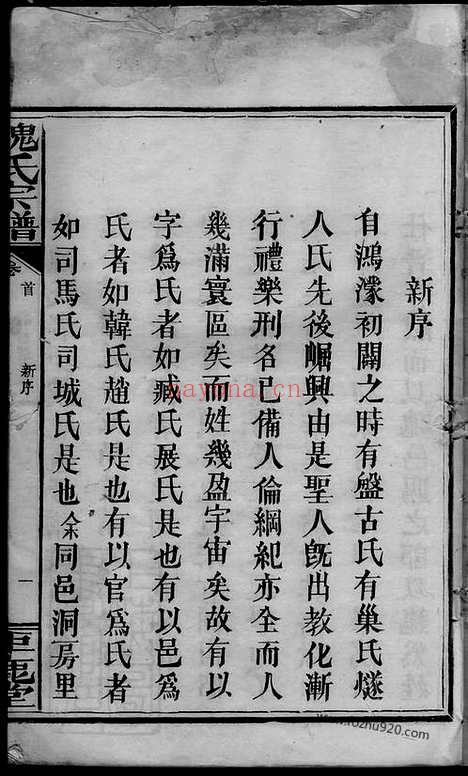 新序
自鴻濛初闢之時有盤古氏有巢氏燧
人氏先後崛興由是聖人既出教化漸
行禮樂刑名已備人倫綱紀亦全而人
幾滿寰區矣而姓幾盈宇宙矣故有以
字爲氏者如臧氏展氏是也有以邑爲
氏者如韓氏趙氏是也有以官爲氏者
如司馬氏司城氏是也余同邑洞房里
魏氏宗譜
卷首
新序
一
鉅鹿堂
nayona.cn
www.fozhu920.com